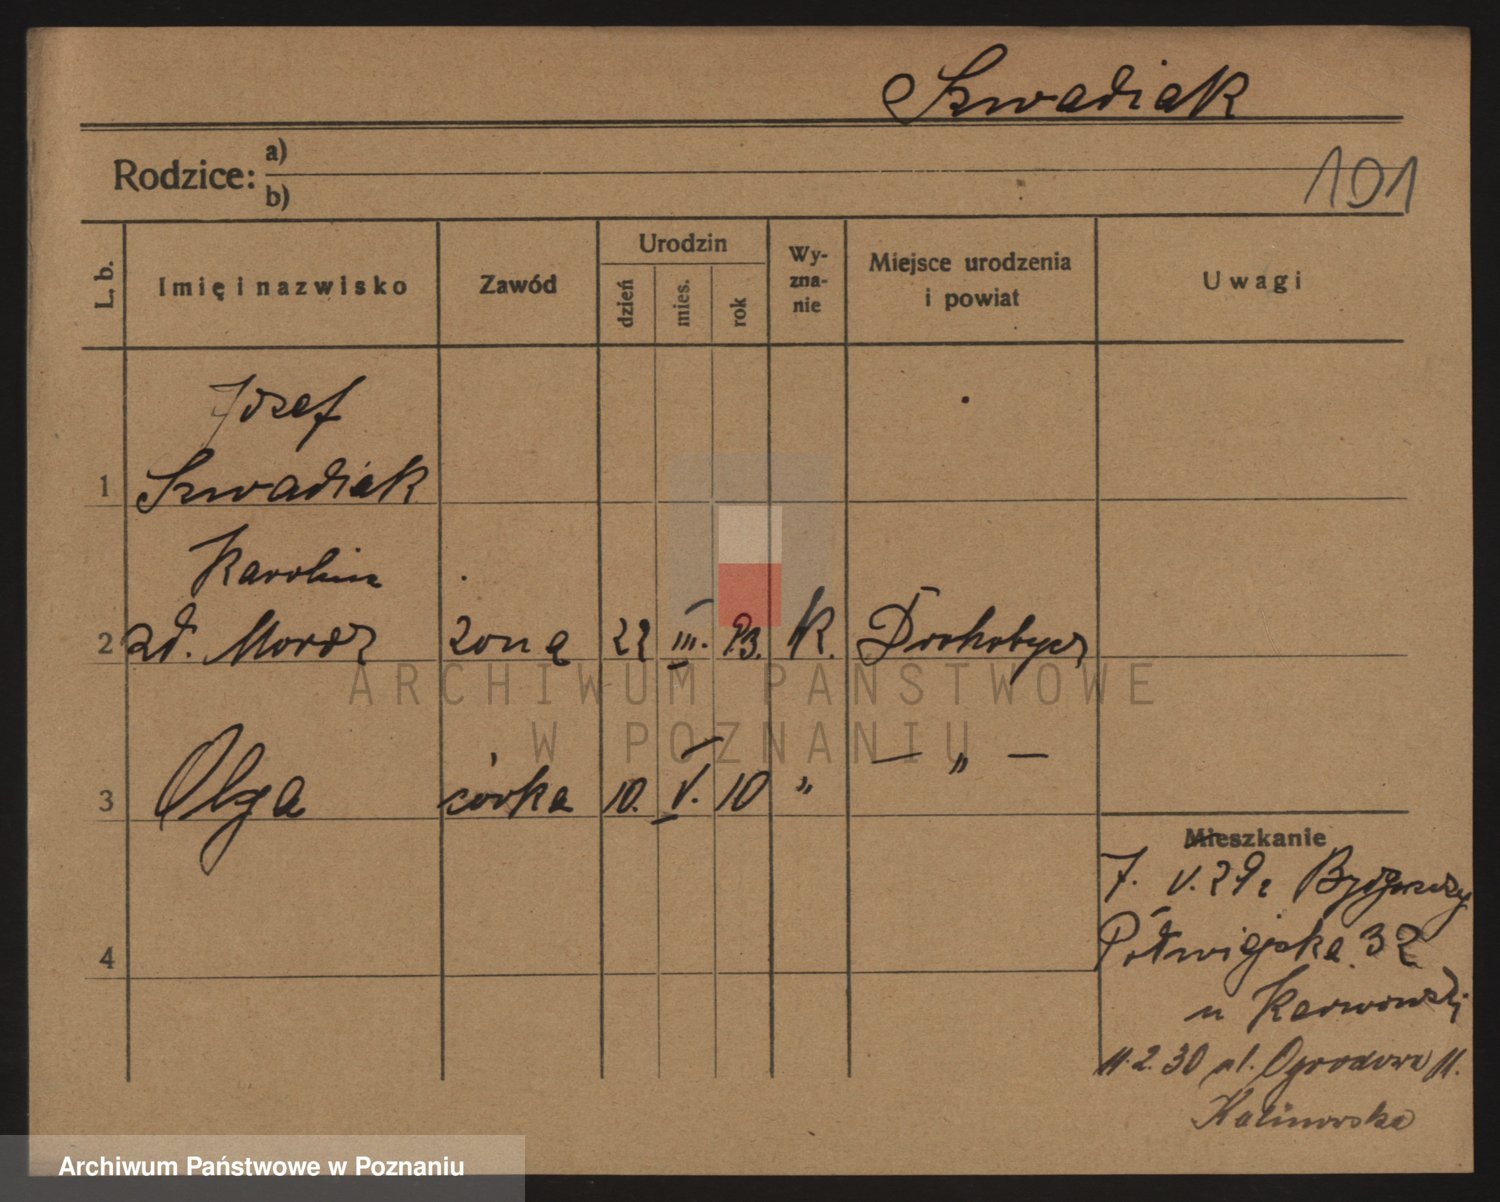 Szwadiak
Rodzice: a)
b)
191
L. b.
Imię i nazwisko
Zawód
Urodzin
dzień
mies.
rok
Wy-
zna-
nie
Miejsce urodzenia
i powiat
Uwagi
Józef
1 Szwadiak
Karolina
2 zd. Moroz żona 22 III. 93. K. Drohobycz
3 Olga córka 10. V. 10 " — " —
4
Mieszkanie
7. V. 29 z Bydgoszczy
Półwiejska 32
u Karwowski
11.2.30 ul. Ogrodowa 11.
Kalinowska
ARCHIWUM PAŃSTWOWE
W POZNANIU
Archiwum Państwowe w Poznaniu